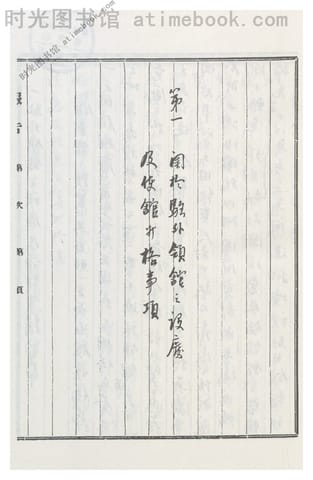 时光图书馆 atimebook.com
时光图书馆 atimebook.com
第一 関於駐外領館之設廢
及使館升格事項